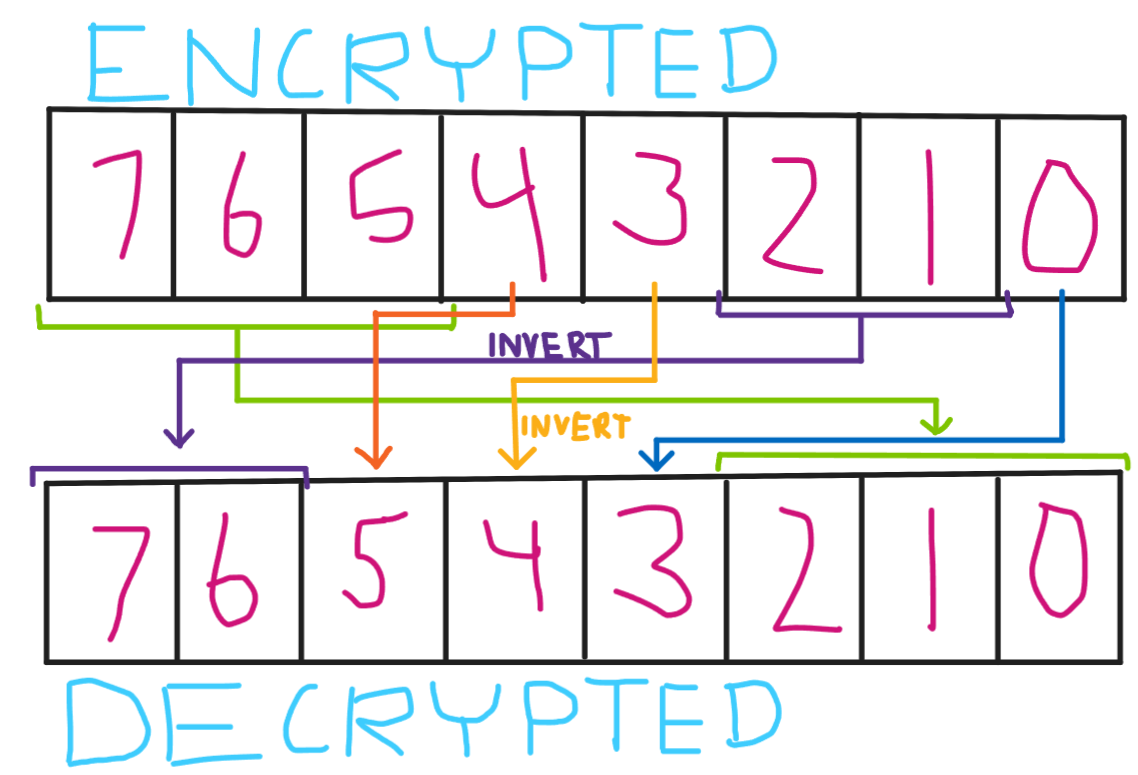 ENCRYPTED
7 6 5 4 3 2 1 0
INVERT
INVERT
7 6 5 4 3 2 1 0
DECRYPTED